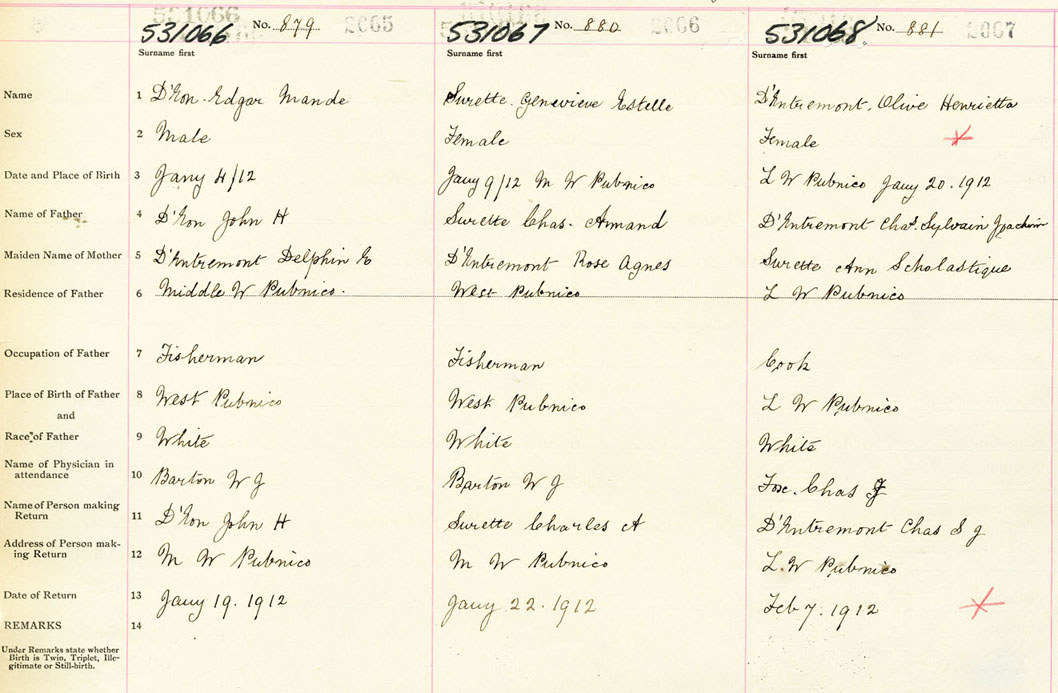 531066 No. 879 2005 531067 No. 880 2006 531068 No. 881 2007
Surname first Surname first Surname first
Name 1 D'Eon. Edgar Mande Surette. Genevieve Estelle D'Entremont. Olive Henrietta
Sex 2 Male Female Female
Date and Place of Birth 3 Jany 4/12 Jany 9/12 M W Pubnico L W Pubnico Jany 20. 1912
Name of Father 4 D'Eon John H Surette Chas. Armand D'Entremont Chas. Sylvain Joachim
Maiden Name of Mother 5 D'Entremont Delphin E D'Entremont Rose Agnes Surette Ann Scholastique
Residence of Father 6 Middle W Pubnico. West Pubnico L W Pubnico
Occupation of Father 7 Fisherman Fisherman Cook
Place of Birth of Father 8 West Pubnico West Pubnico L W Pubnico
and
Race of Father 9 White White White
Name of Physician in
attendance 10 Barton W J Barton W J Fox. Chas J
Name of Person making
Return 11 D'Eon John H Surette Charles A D'Entremont Chas S J
Address of Person mak-
ing Return 12 M W Pubnico M W Pubnico L. W Pubnico
Date of Return 13 Jany 19. 1912 Jany 22. 1912 Feb 7. 1912
REMARKS 14
Under Remarks state whether
Birth is Twin, Triplet, Ille-
gitimate or Still-birth.